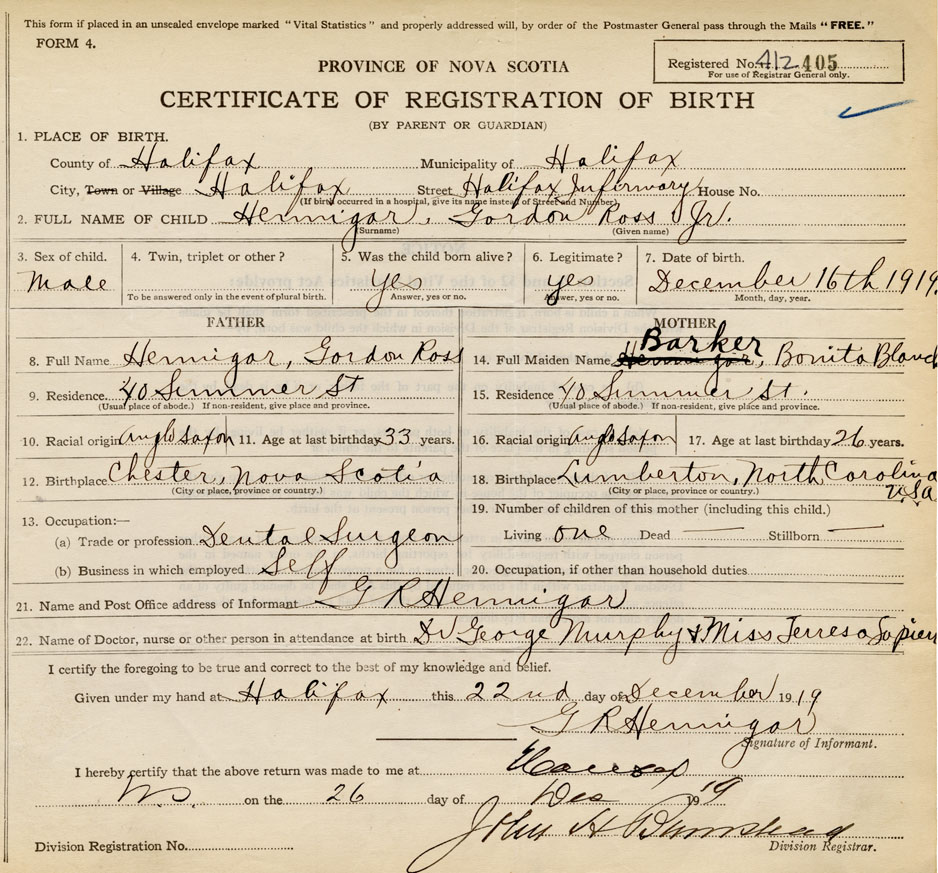 This form if placed in an unsealed envelope marked "Vital Statistics" and properly addressed will, by order of the Postmaster General pass through the Mails "FREE."
FORM 4.
Registered No. 412 405
For use of Registrar General only.
PROVINCE OF NOVA SCOTIA
CERTIFICATE OF REGISTRATION OF BIRTH
(BY PARENT OR GUARDIAN)
1. PLACE OF BIRTH.
County of Halifax Municipality of Halifax
City, Town or Village Halifax Street Halifax Infirmary House No.
(If birth occurred in a hospital, give its name instead of Street and Number)
2. FULL NAME OF CHILD Hennigar, Gordon Ross Jr.
(Surname) (Given name)
3. Sex of child. 4. Twin, triplet or other? 5. Was the child born alive? 6. Legitimate? 7. Date of birth.
Male yes yes December 16th 1919.
To be answered only in the event of plural birth. Answer, yes or no. Answer, yes or no. Month, day, year.
FATHER MOTHER
Barker
8. Full Name Hennigar, Gordon Ross 14. Full Maiden Name Hennigar, Bonita Blanch
9. Residence 40 Summer St 15. Residence 40 Summer St.
(Usual place of abode.) If non-resident, give place and province. (Usual place of abode.) If non-resident, give place and province.
10. Racial origin Anglo Saxon 11. Age at last birthday 33 years. 16. Racial origin Anglo Saxon 17. Age at last birthday 26 years.
12. Birthplace Chester, Nova Scotia 18. Birthplace Lumberton, North Carolina
USA
(City or place, province or country.) (City or place, province or country.)
13. Occupation:— 19. Number of children of this mother (including this child.)
(a) Trade or profession Dental Surgeon Living one Dead — Stillborn —
(b) Business in which employed Self 20. Occupation, if other than household duties
21. Name and Post Office address of Informant G R Hennigar
22. Name of Doctor, nurse or other person in attendance at birth Dr George Murphy & Miss Terresa
I certify the foregoing to be true and correct to the best of my knowledge and belief.
Given under my hand at Halifax this 22nd day of December 1919
G R Hennigar
Signature of Informant.
I hereby certify that the above return was made to me at Halifax
N.S. on the 26 day of Dec 1919
John H
Division Registration No. Division Registrar.